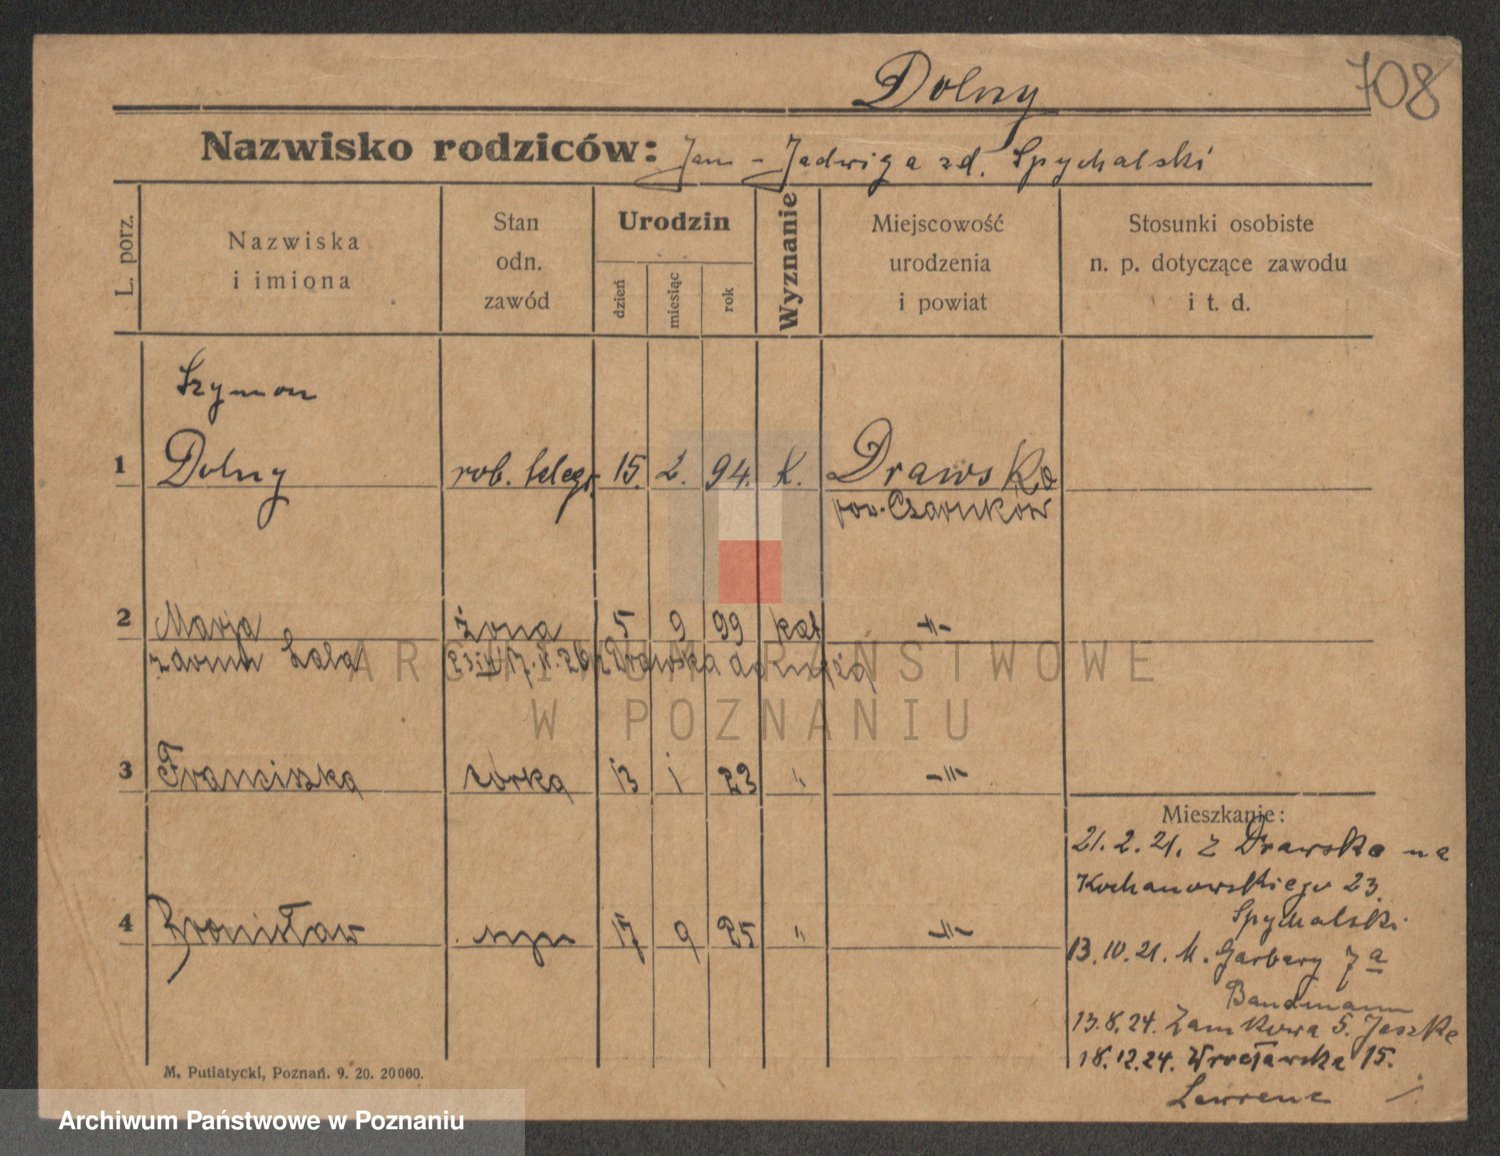 Dolny
708
Nazwisko rodziców: Jan - Jadwiga zd. Spychalski
L. porz.
Nazwiska
i imiona
Stan
odn.
zawód
Urodzin
dzień
miesiąc
rok
Wyznanie
Miejscowość
urodzenia
i powiat
Stosunki osobiste
n. p. dotyczące zawodu
i t. d.
Szymon
1 Dolny rob. telegr. 15. 2. 94. k. Drawsko
pow. Czarnków
2 Marja żona 5 9 99 kat -"-
zdomu z Drawska do męża
3 Franciszka córka 13 1 23 " -"-
4 Bronisław syn 17 9 25 " -"-
Mieszkanie:
21. 2. 21. z Drawska na
Kochanowskiego 23.
Spychalski.
13. 10. 21. M. Garbary 7a
Bandmann
13. 8. 24. Zamkowa 5. Jeszke
18. 12. 24. Wrocławska 15.
Lawrenc
M. Putiatycki, Poznań. 9. 20. 20000.
ARCHIWUM PAŃSTWOWE
W POZNANIU
Archiwum Państwowe w Poznaniu